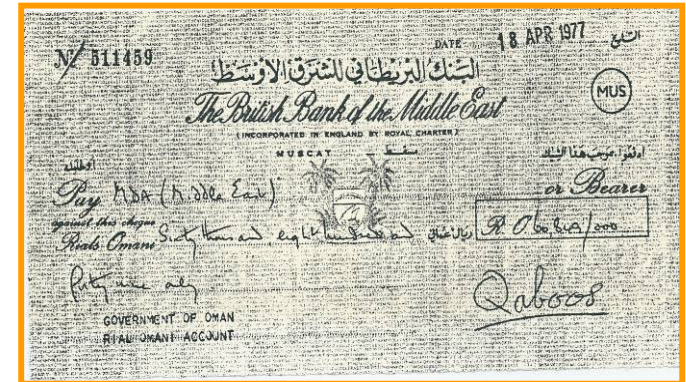 Nº 511459
DATE 18 APR 1977 التاريخ
البنك البريطاني للشرق الأوسط
The British Bank of the Middle East
(INCORPORATED IN ENGLAND BY ROYAL CHARTER)
MUS
MUSCAT مسقط
ادفعوا بموجب هذا الشيك
Pay MDA (Middle East) or Bearer
against this cheque
Rials Omani Sixty thousand, eight hundred and ريال عماني R.O
only
Qaboos
GOVERNMENT OF OMAN
RIAL OMANI ACCOUNT